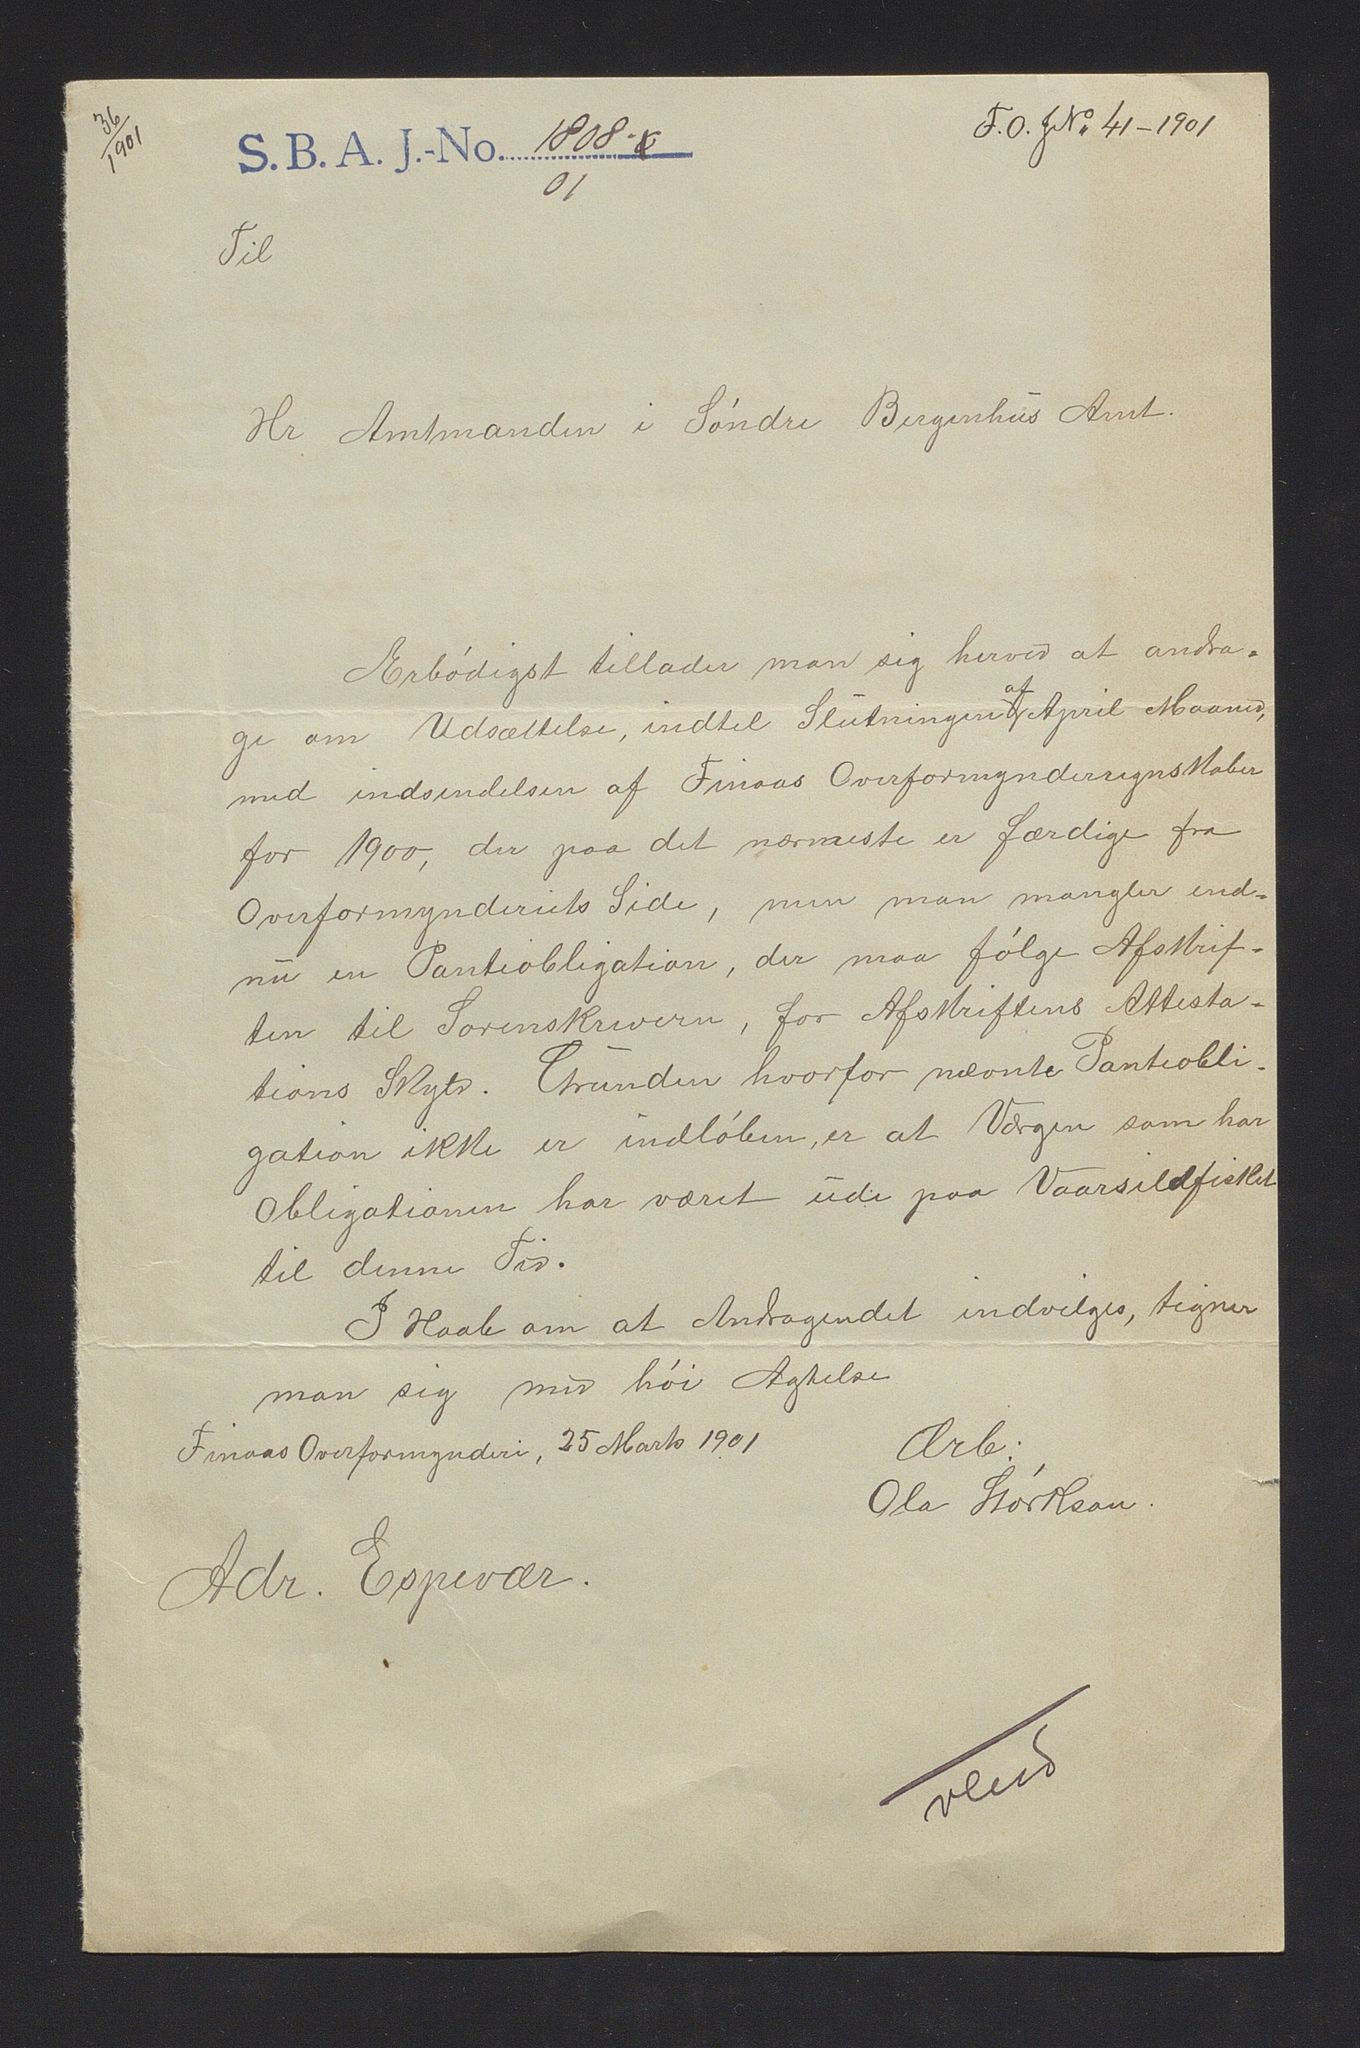 36
1901
S. B. A. J.-No. 1808
01
F. O. J No. 41-1901
Til
Hr Amtmanden i Söndre Bergenhus Amt.
Ærbödigst tillader man sig herved at andra-
ge om Udsættelse, indtil Slutningen af April Maaned,
med indsendelsen af Finaas Overformynderregnskaber
for 1900, der paa det nærmeste er færdige fra
Overformynderiets Side, men man mangler end-
nu en Panteobligation, der maa fölge Afskrif-
ten til Sorenskrivern, for Afskriftens Attesta-
tions Skyld. Grunden hvorfor nævnte Panteobli-
gation ikke er indlöben, er at Værgen som har
Obligationen har været ude paa Vaarsildfisket
til denne Tid.
I Haab om at Andragendet indvilges, tegner
man sig med höi Agtelse
Finaas Overformynderi, 25 Marts 1901
Ærb:
Ola Störkson.
Adr. Espevær.
vend